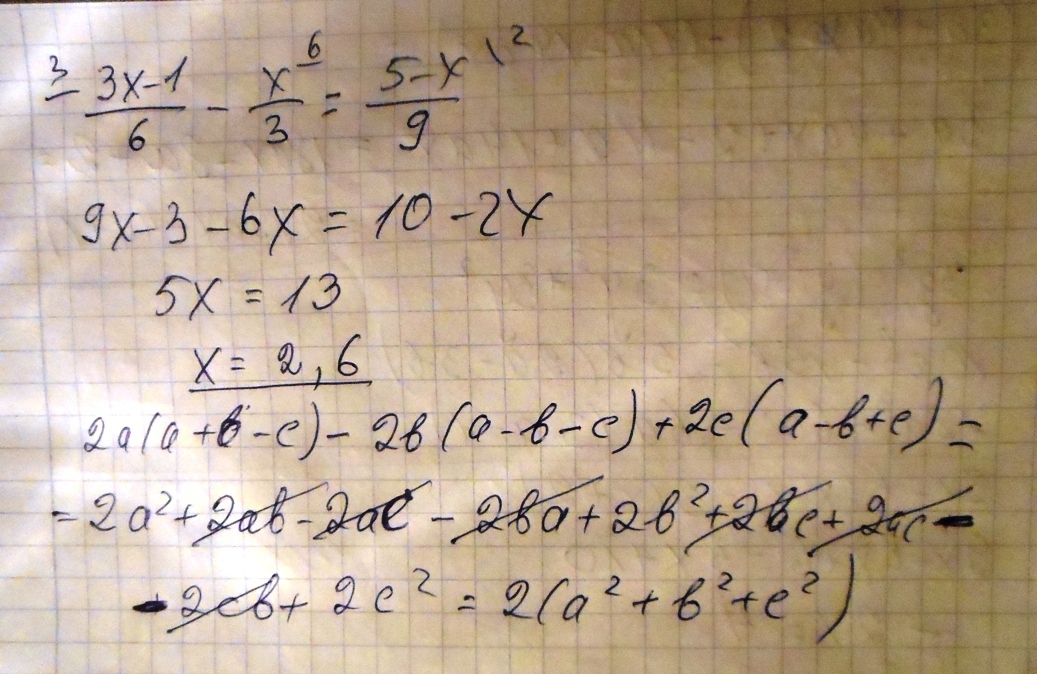 3 (3x-1)/6 - x/3 6 = (5-x)/9 \2
9x-3-6x = 10-2x
5x = 13
x = 2,6
2a(a+b-c) - 2b(a-b-c) + 2c(a-b+c) =
= 2a² + 2ab - 2ac - 2ba + 2b² + 2bc + 2ac -
- 2cb + 2c² = 2(a² + b² + c²)